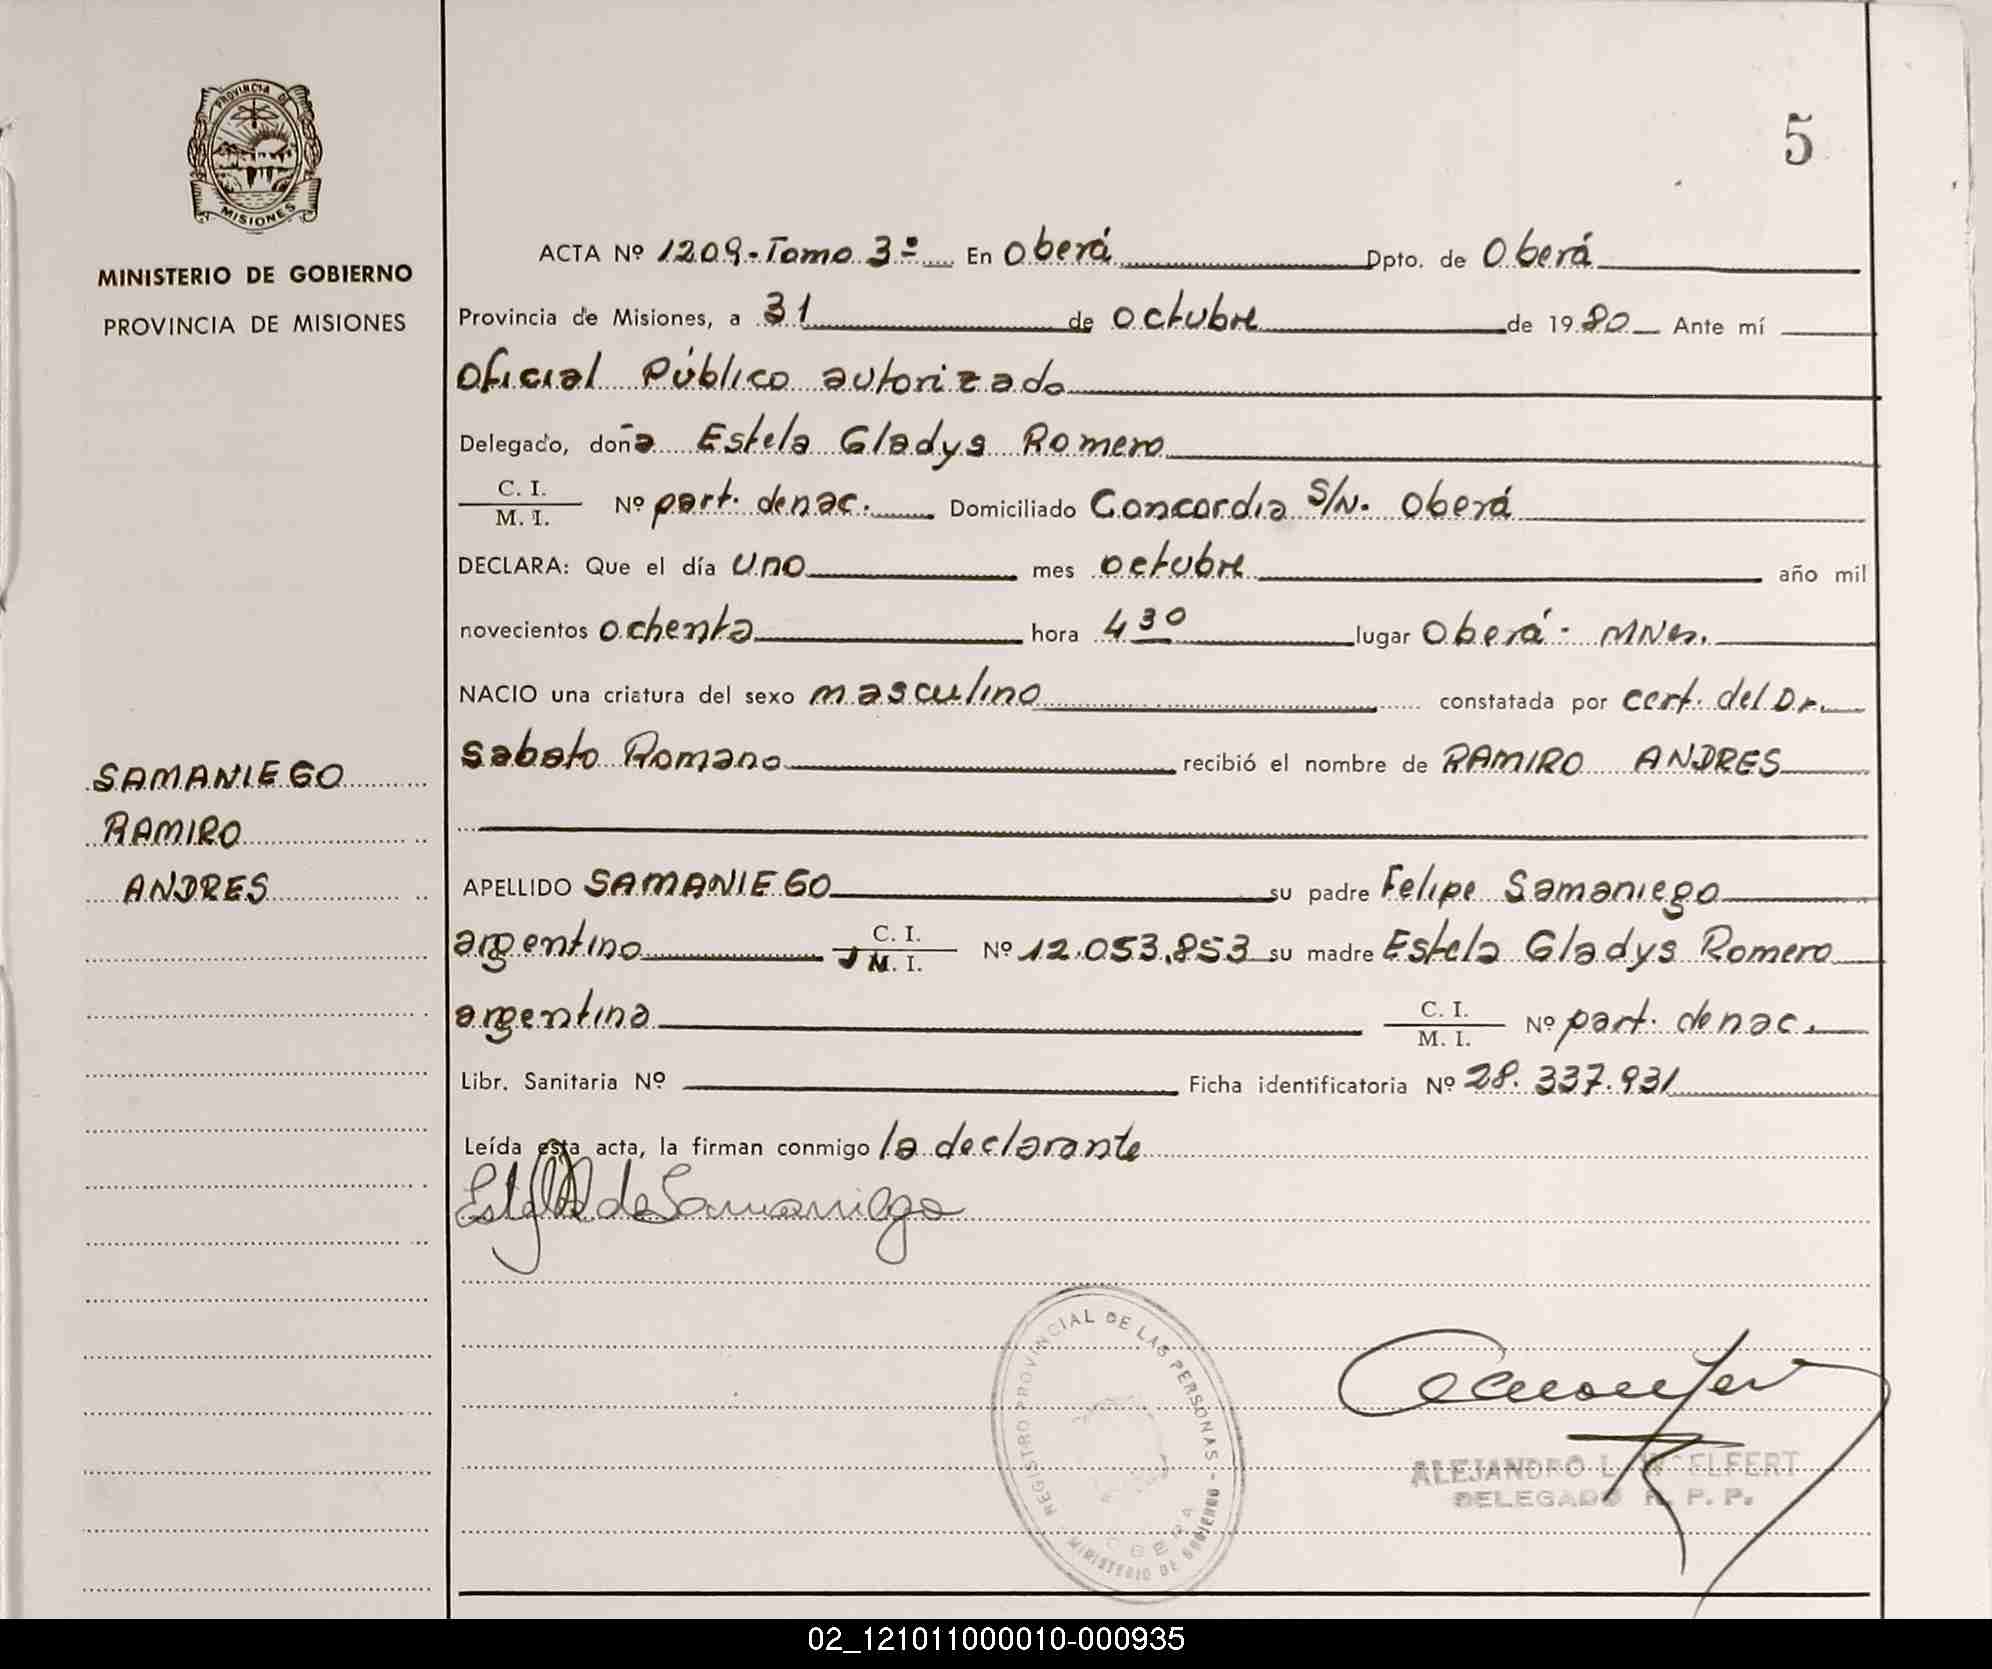 PROVINCIA DE
MISIONES
MINISTERIO DE GOBIERNO
PROVINCIA DE MISIONES
SAMANIEGO
RAMIRO
ANDRES
5
ACTA Nº 1209-Tomo 3º En Oberá Dpto. de Oberá
Provincia de Misiones, a 31 de octubre de 1980 Ante mí
Oficial Público autorizado
Delegado, doña Estela Gladys Romero
C. I.
M. I. Nº part. de nac. Domiciliado Concordia S/N. Oberá
DECLARA: Que el día uno mes octubre año mil
novecientos ochenta hora 4 30 lugar Oberá - MNes.
NACIO una criatura del sexo masculino constatada por cert. del Dr.
Sabato Romano recibió el nombre de RAMIRO ANDRES
APELLIDO SAMANIEGO su padre Felipe Samaniego
argentino C. I. M. I. Nº 12.053.853 su madre Estela Gladys Romero
argentina C. I. M. I. Nº part. de nac.
Libr. Sanitaria Nº Ficha identificatoria Nº 28.337.931
Leída esta acta, la firman conmigo la declarante
de Samaniego
REGISTRO PROVINCIAL DE LAS PERSONAS - MINISTERIO DE GOBIERNO
OBERA
ALEJANDRO L. ELFERT
DELEGADO R. P. P.
02_121011000010-000935